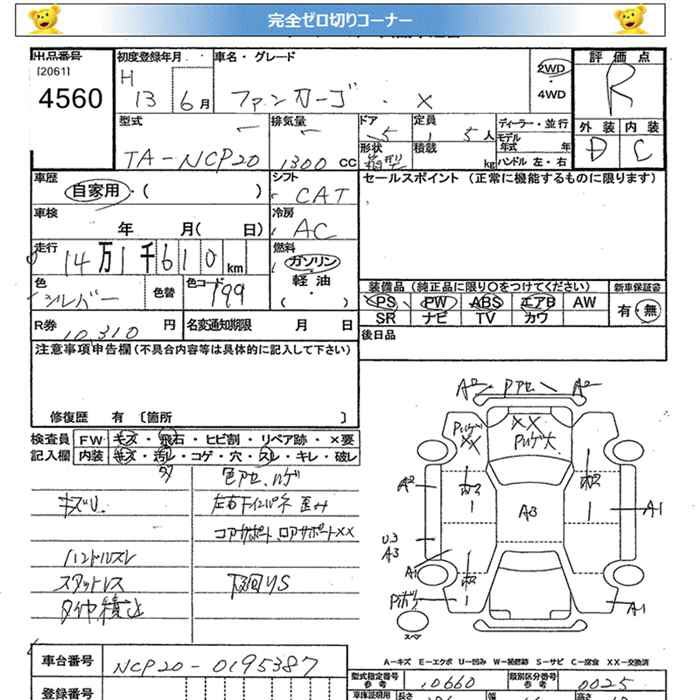 完全ゼロ切りコーナー
出品番号 初度登録年月 車名・グレード 評価点
[2061] H 2WD R
4560 13 6月 ファンカーゴ . X ・4WD
型式 排気量 ドア 定員 ディーラー・並行 外装 内装
5 5人 モデル年式 年 D C
TA-NCP20 1300cc 形状 箱型 積載 kg ハンドル 左・右
車歴 シフト セールスポイント (正常に機能するものに限ります)
自家用・( ) CAT
車検 冷房
年 月( 日) AC
走行 燃料
14万1千610km ガソリン
色 色替 色コード 軽油 装備品 (純正品に限り○をつけてください) 新車保証書
シルバー 199 ( ・ ) PS PW ABS エアB AW 有・無
R券 名変通知期限 月 日 SR ナビ TV カワ
10,310円 後日品
注意事項申告欄(不具合内容等は具体的に記入して下さい)
修復歴 有 〔箇所 〕
検査員 FW キズ・飛石・ヒビ割・リペア跡・×要
記入欄 内装 キズ・汚レ・コゲ・穴・スレ・キレ・破レ
色アセ.ハゲ
キズU. 左右下インパネ 歪み
コアサポート ロアサポートXX
ハンドルスレ
スタットレス 下回りS
タイヤ積込
A2 Pアセ A2
XX
XX
A2 A3 A1
U3
A3
A1
A1
スペア
A-キズ E-エクボ U-凹み W-補修跡 S-サビ C-腐食 XX-交換済
車台番号 NCP20-0195387
型式指定番号 参考 10660 類別区分番号 参考 0025
登録番号 車庫証明用 長さ 幅 高さ